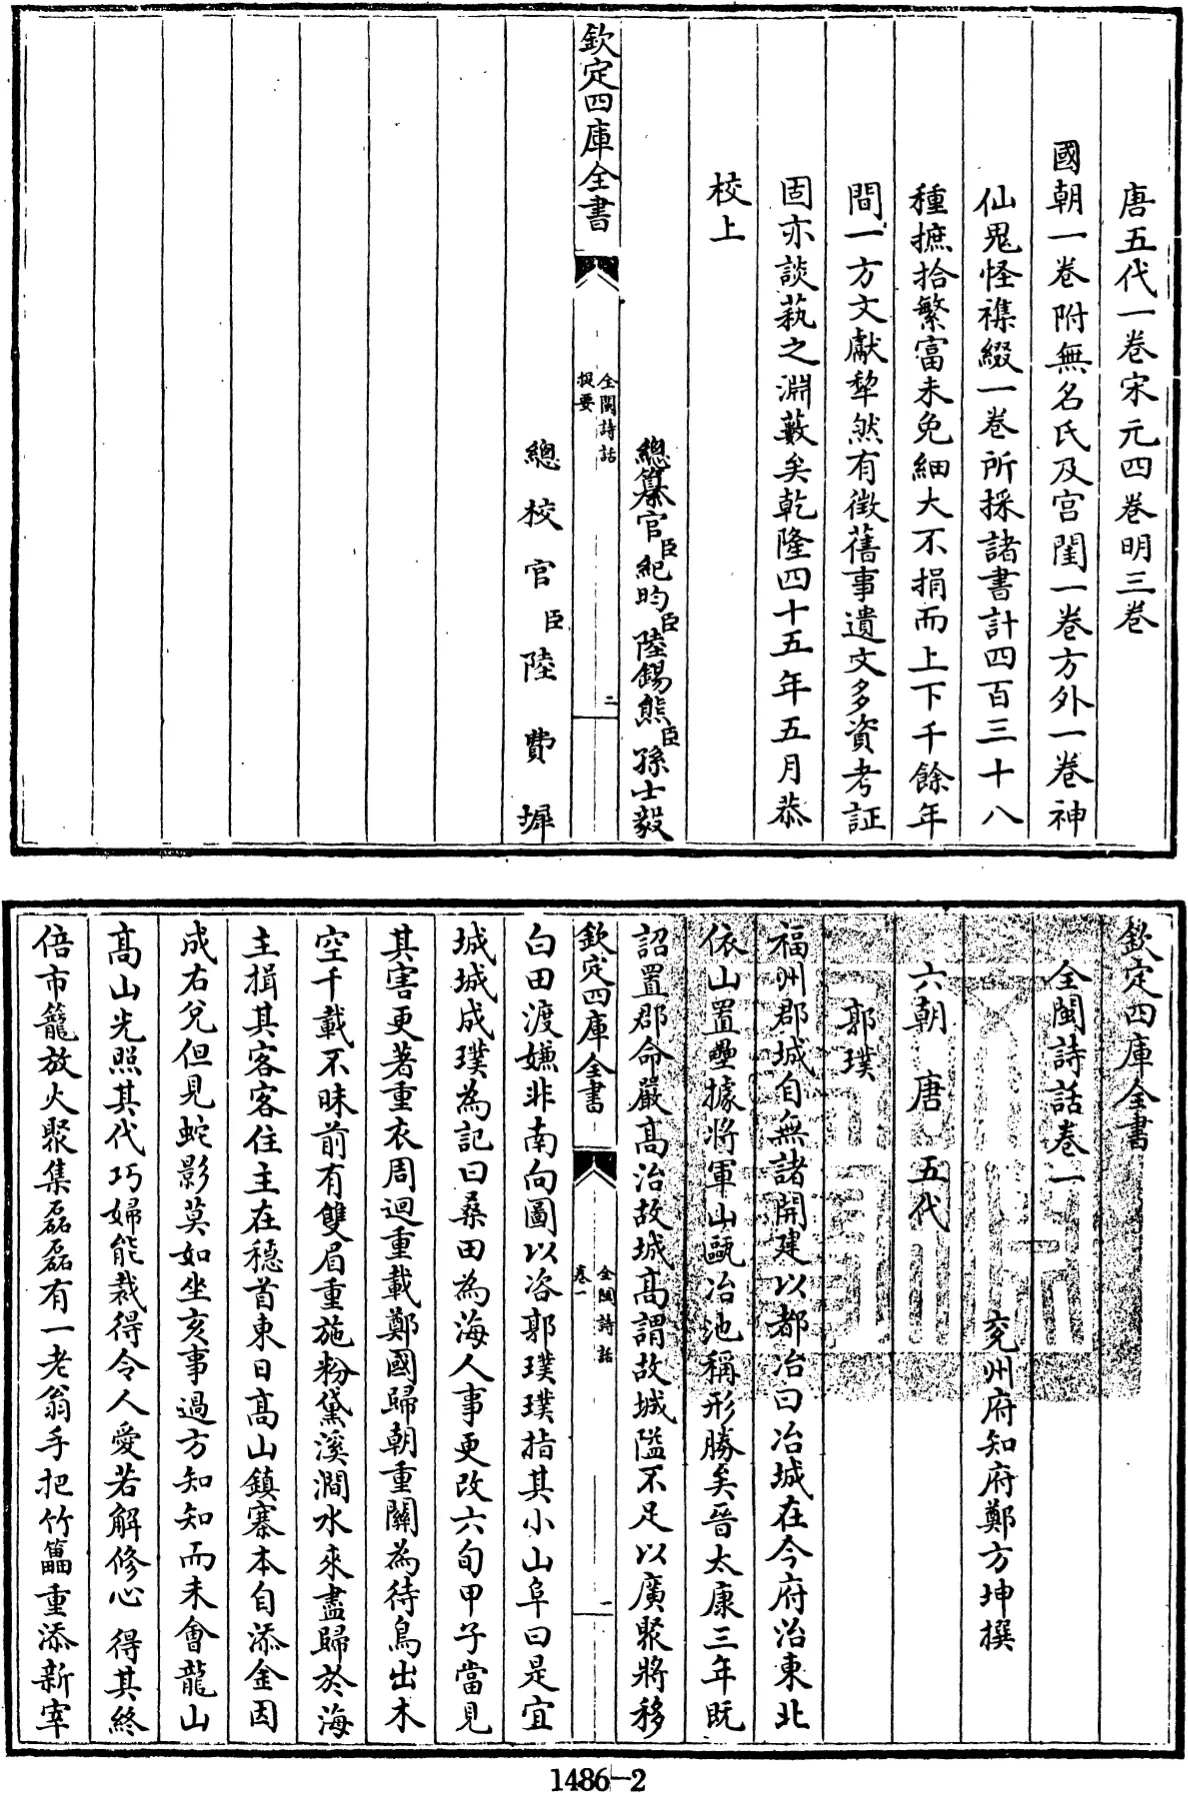 唐五代一卷宋元四卷明三卷
國朝一卷附無名氏及宫閨一卷方外一卷神
仙鬼怪襍綴一卷所採諸書計四百三十八
種摭拾繁富未免細大不捐而上下千餘年
間一方文獻犂然有徵舊事遺文多資考証
固亦談蓺之淵藪矣乾隆四十五年五月恭
校上
總纂官臣紀昀臣陸錫熊臣孫士毅
欽定四庫全書
全閩詩話
提要
二
總校官臣陸費墀
欽定四庫全書
全閩詩話卷一
兖州府知府鄭方坤撰
六朝 唐 五代
郭璞
福州郡城自無諸開建以都冶曰冶城在今府治東北
依山置壘據將軍山甌冶池稱形勝矣晉太康三年既
詔置郡命嚴高治故城高謂故城隘不足以廣聚將移
欽定四庫全書
全閩詩話
卷一
一
白田渡嫌非南向圖以咨郭璞璞指其小山阜曰是宜
城城成璞為記曰桑田為海人事更改六旬甲子當見
其害更著重衣周迴重載鄭國歸朝重關為待鳥出木
空千載不昧前有雙眉重施粉黛溪澗水來盡歸於海
主揖其客客住主在穩首東日高山鎮寨本自添金因
成右兌但見蛇影莫如坐亥事過方知知而未會龍山
高山光照其代巧婦能裁得令人愛若解修心得其終
倍市籠放火聚集磊磊有一老翁手把竹籯重添新宰
1486-2